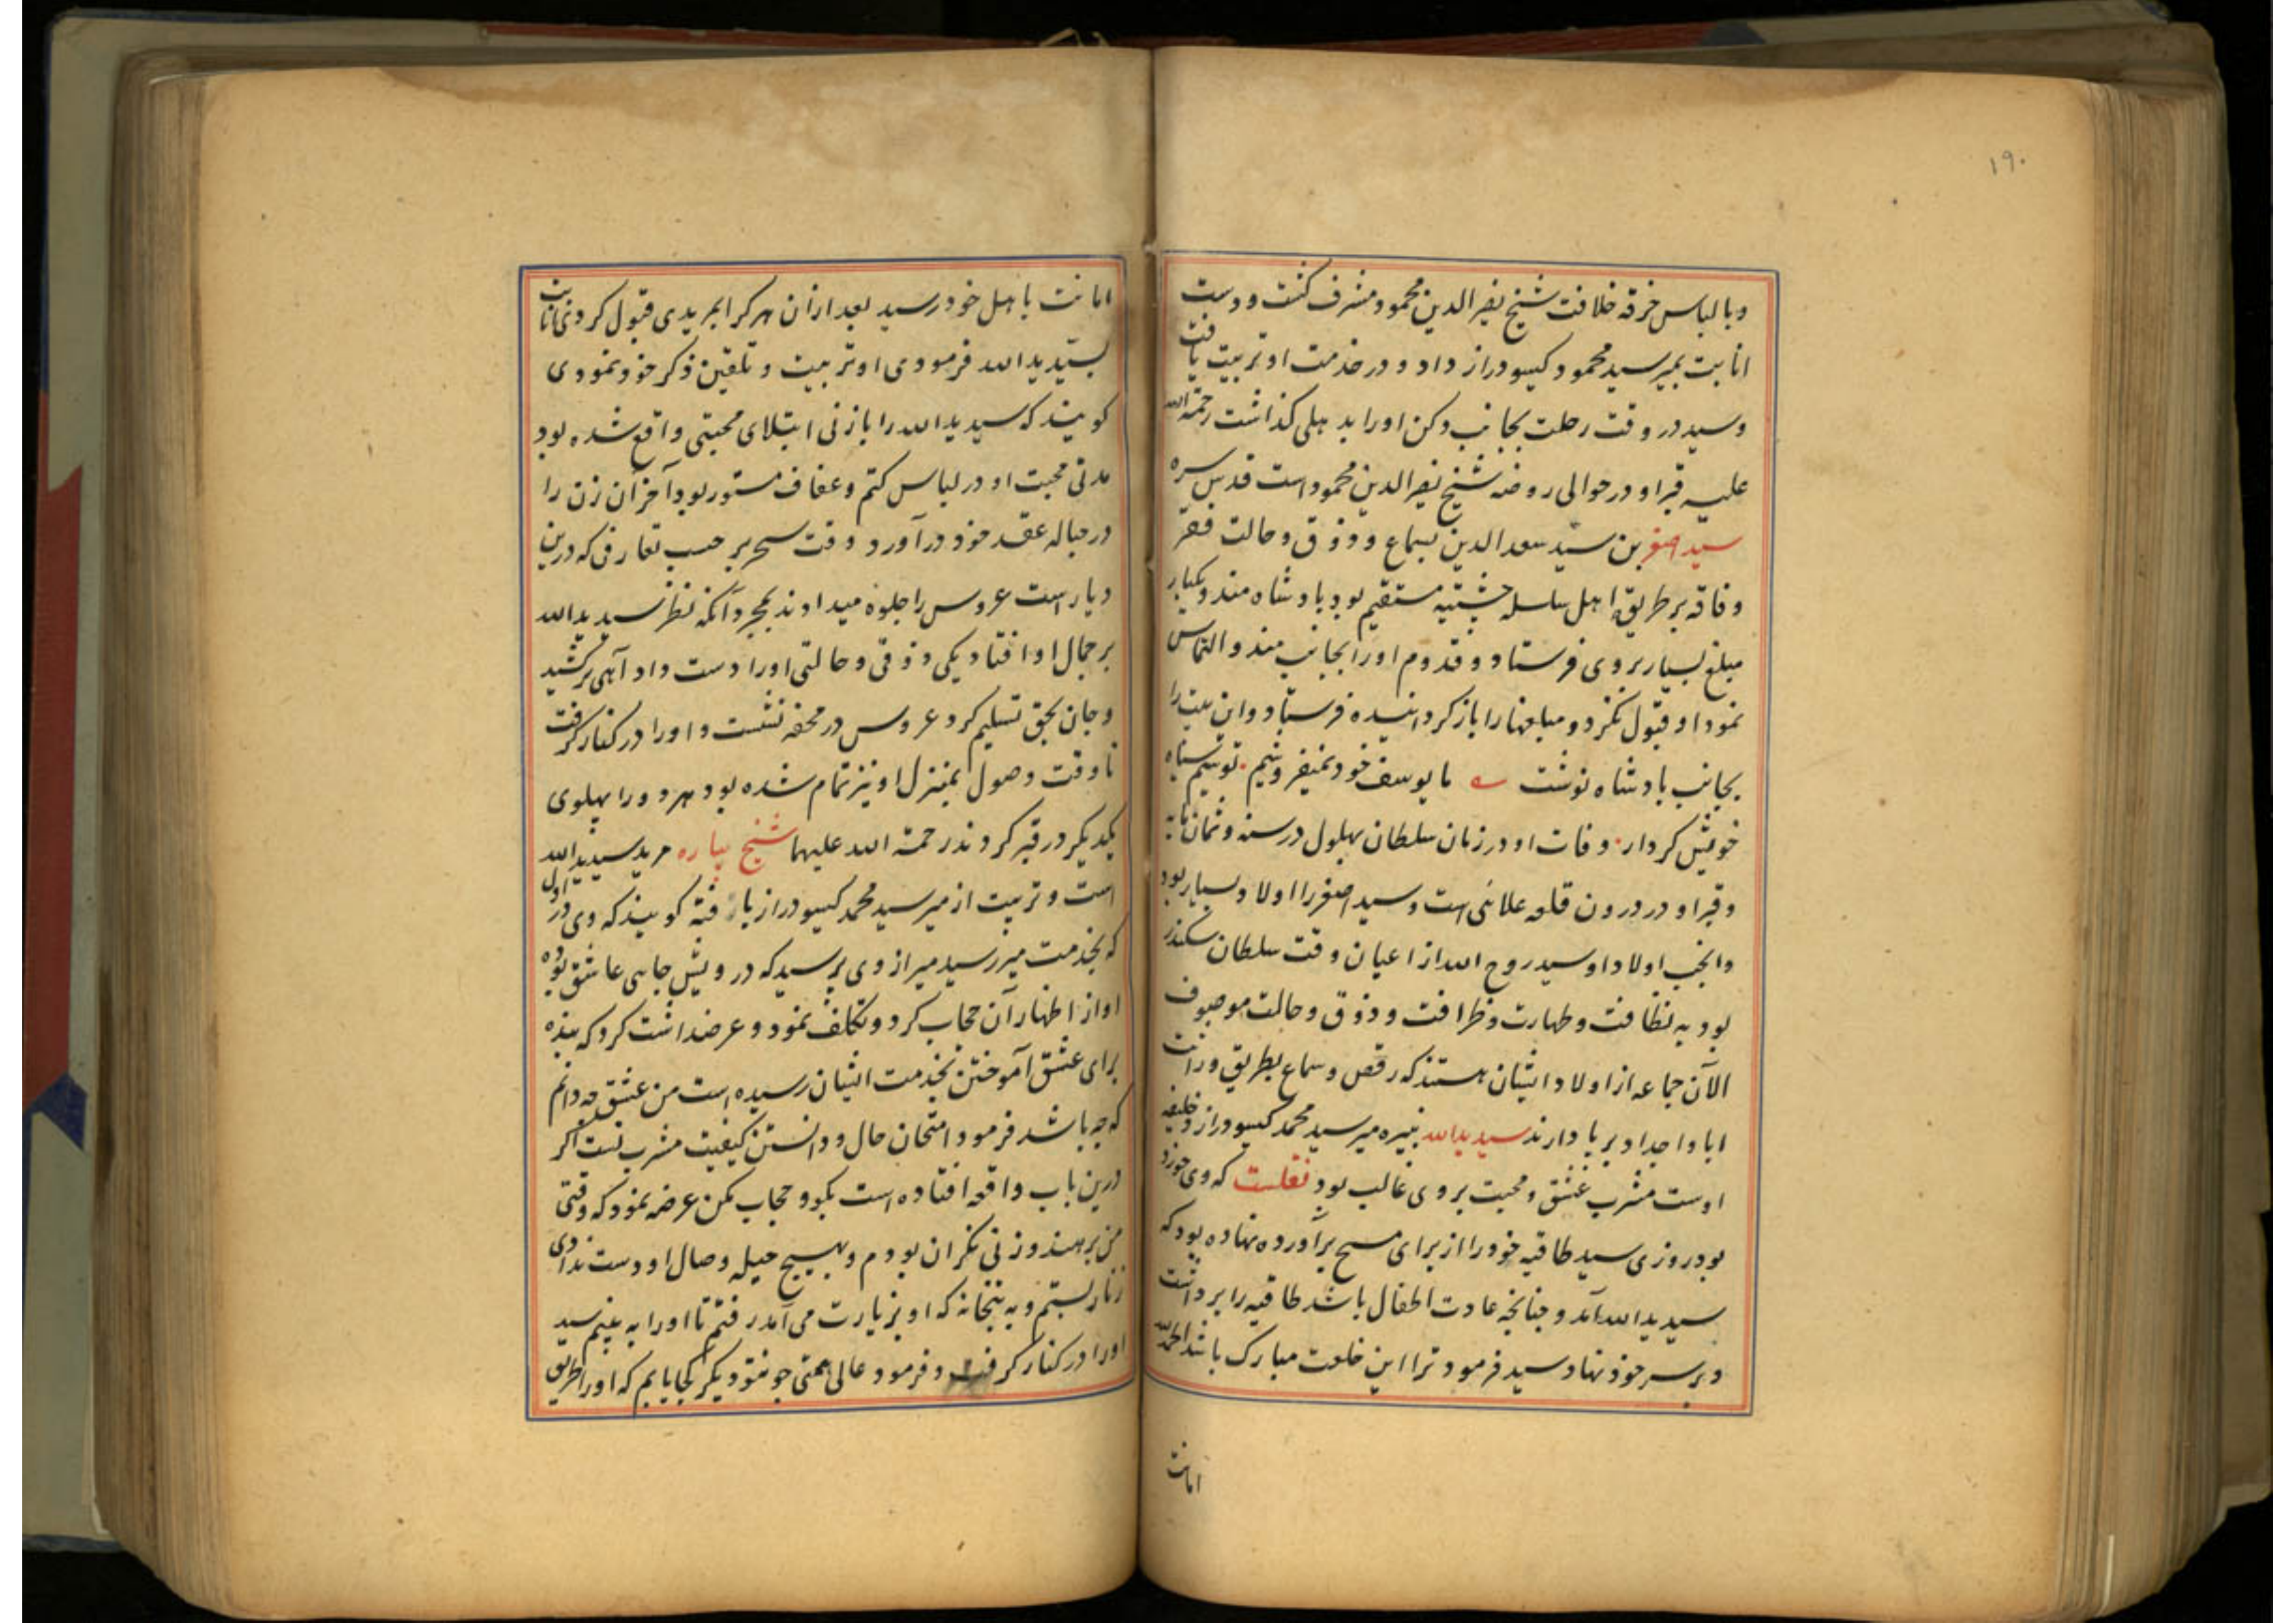 ۱۹۰
وبالباس خرقه خلافت شیخ نصیرالدین محمود مشرف کشت و دست
انابت بمیر سید محمود کیسو دراز داد و در خدمت او تربیت یافت
وسید در وقت رحلت بجانب دکن اورا بدهلی کذاشت رحمة الله
علیه قبر او در حوالی روضه شیخ نصیرالدین محمود است قدس سره
سید اصغر بن سید سعدالدین بسماع و ذوق و حالت فقر
وفاقه بر طریق اهل سلسله چشتیه مستقیم بود بادشاه مندو یکبار
مبلغ بسیار بروی فرستاد و قدوم اورا بجانب مندو التماس
نمود او قبول نکرد و مبلغها را باز کردانیده فرستاد و این بیت را
بجانب بادشاه نوشت ما یوسف خود نمیفروشیم تو سیم سیاه
خویش کردار وفات او در زمان سلطان بهلول در سنه وثمان مایه
وقبر او در درون قلعه علائی است و سید اصغر را اولاد بسیار بود
وانجب اولاد او سید روح الله از اعیان وقت سلطان سکندر
بود به نظافت و طهارت و ظرافت و ذوق و حالت موصوف
الآن جماعه از اولاد ایشان هستند که رقص و سماع بطریق وراثت
ابا و اجداد برپا دارند سید یدالله نبیره میر سید محمد کیسو دراز و خلیفه
اوست مشرب عشق و محبت بروی غالب بود نقلست که وی خورد
بود روزی سید طاقیه خود را از برای مسح برآورده نهاده بود که
سید یدالله آمد و چنانچه عادت اطفال باشد طاقیه را برداشت
و بر سر خود نهاد سید فرمود ترا این خلعت مبارک باشد الحمدلله
امانت
امانت با هل خود رسید بعد ازان هر کرا بمریدی قبول کردی انابت
بسید یدالله فرمودی او تربیت و تلقین ذکر خود نمودی
کویند که سید یدالله را با زنی ابتلای محبتی واقع شده بود
مدتی محبت او در لباس کتم و عفاف مستور بود آخر آن زن را
در حباله عقد خود درآورد وقت سحر بر حسب تعارفی که درین
دیار است عروس را جلوه میدادند بمجرد آنکه نظر سید یدالله
بر جمال او افتاد یکی ذوقی و حالتی اورا دست داد آهی برکشید
و جان بحق تسلیم کرد عروس در محفه نشست و اورا در کنار کرفت
تا وقت وصول بمنزل او نیز تمام شده بود هر دو را پهلوی
یکدیکر در قبر کردند رحمة الله علیهما شیخ پیاره مرید سید یدالله
است و تربیت از میر سید محمد کیسو دراز یافته کویند که وی در اول
که بخدمت میر رسید میر از وی پرسید که درویش جایی عاشق بوده
او از اظهار آن حجاب کرد و تکلف نمود و عرضداشت کرد که بنده
برای عشق آموختن بخدمت ایشان رسیده است من عشق چه دانم
که چه باشد فرمود امتحان حال و دانستن کیفیت مشرب تست اکر
درین باب واقعه افتاده است بکو و حجاب مکن عرضه نمود که وقتی
من بر هندو زنی نکران بودم و بهیچ حیله وصال او دست ندادی
زنار بستم و به بتخانه که او بزیارت می آمد رفتم تا اورا به بینم سید
اورا در کنار کرفت و فرمود عالی همتی چو تو دیکر کجا یابم که اورا طریق